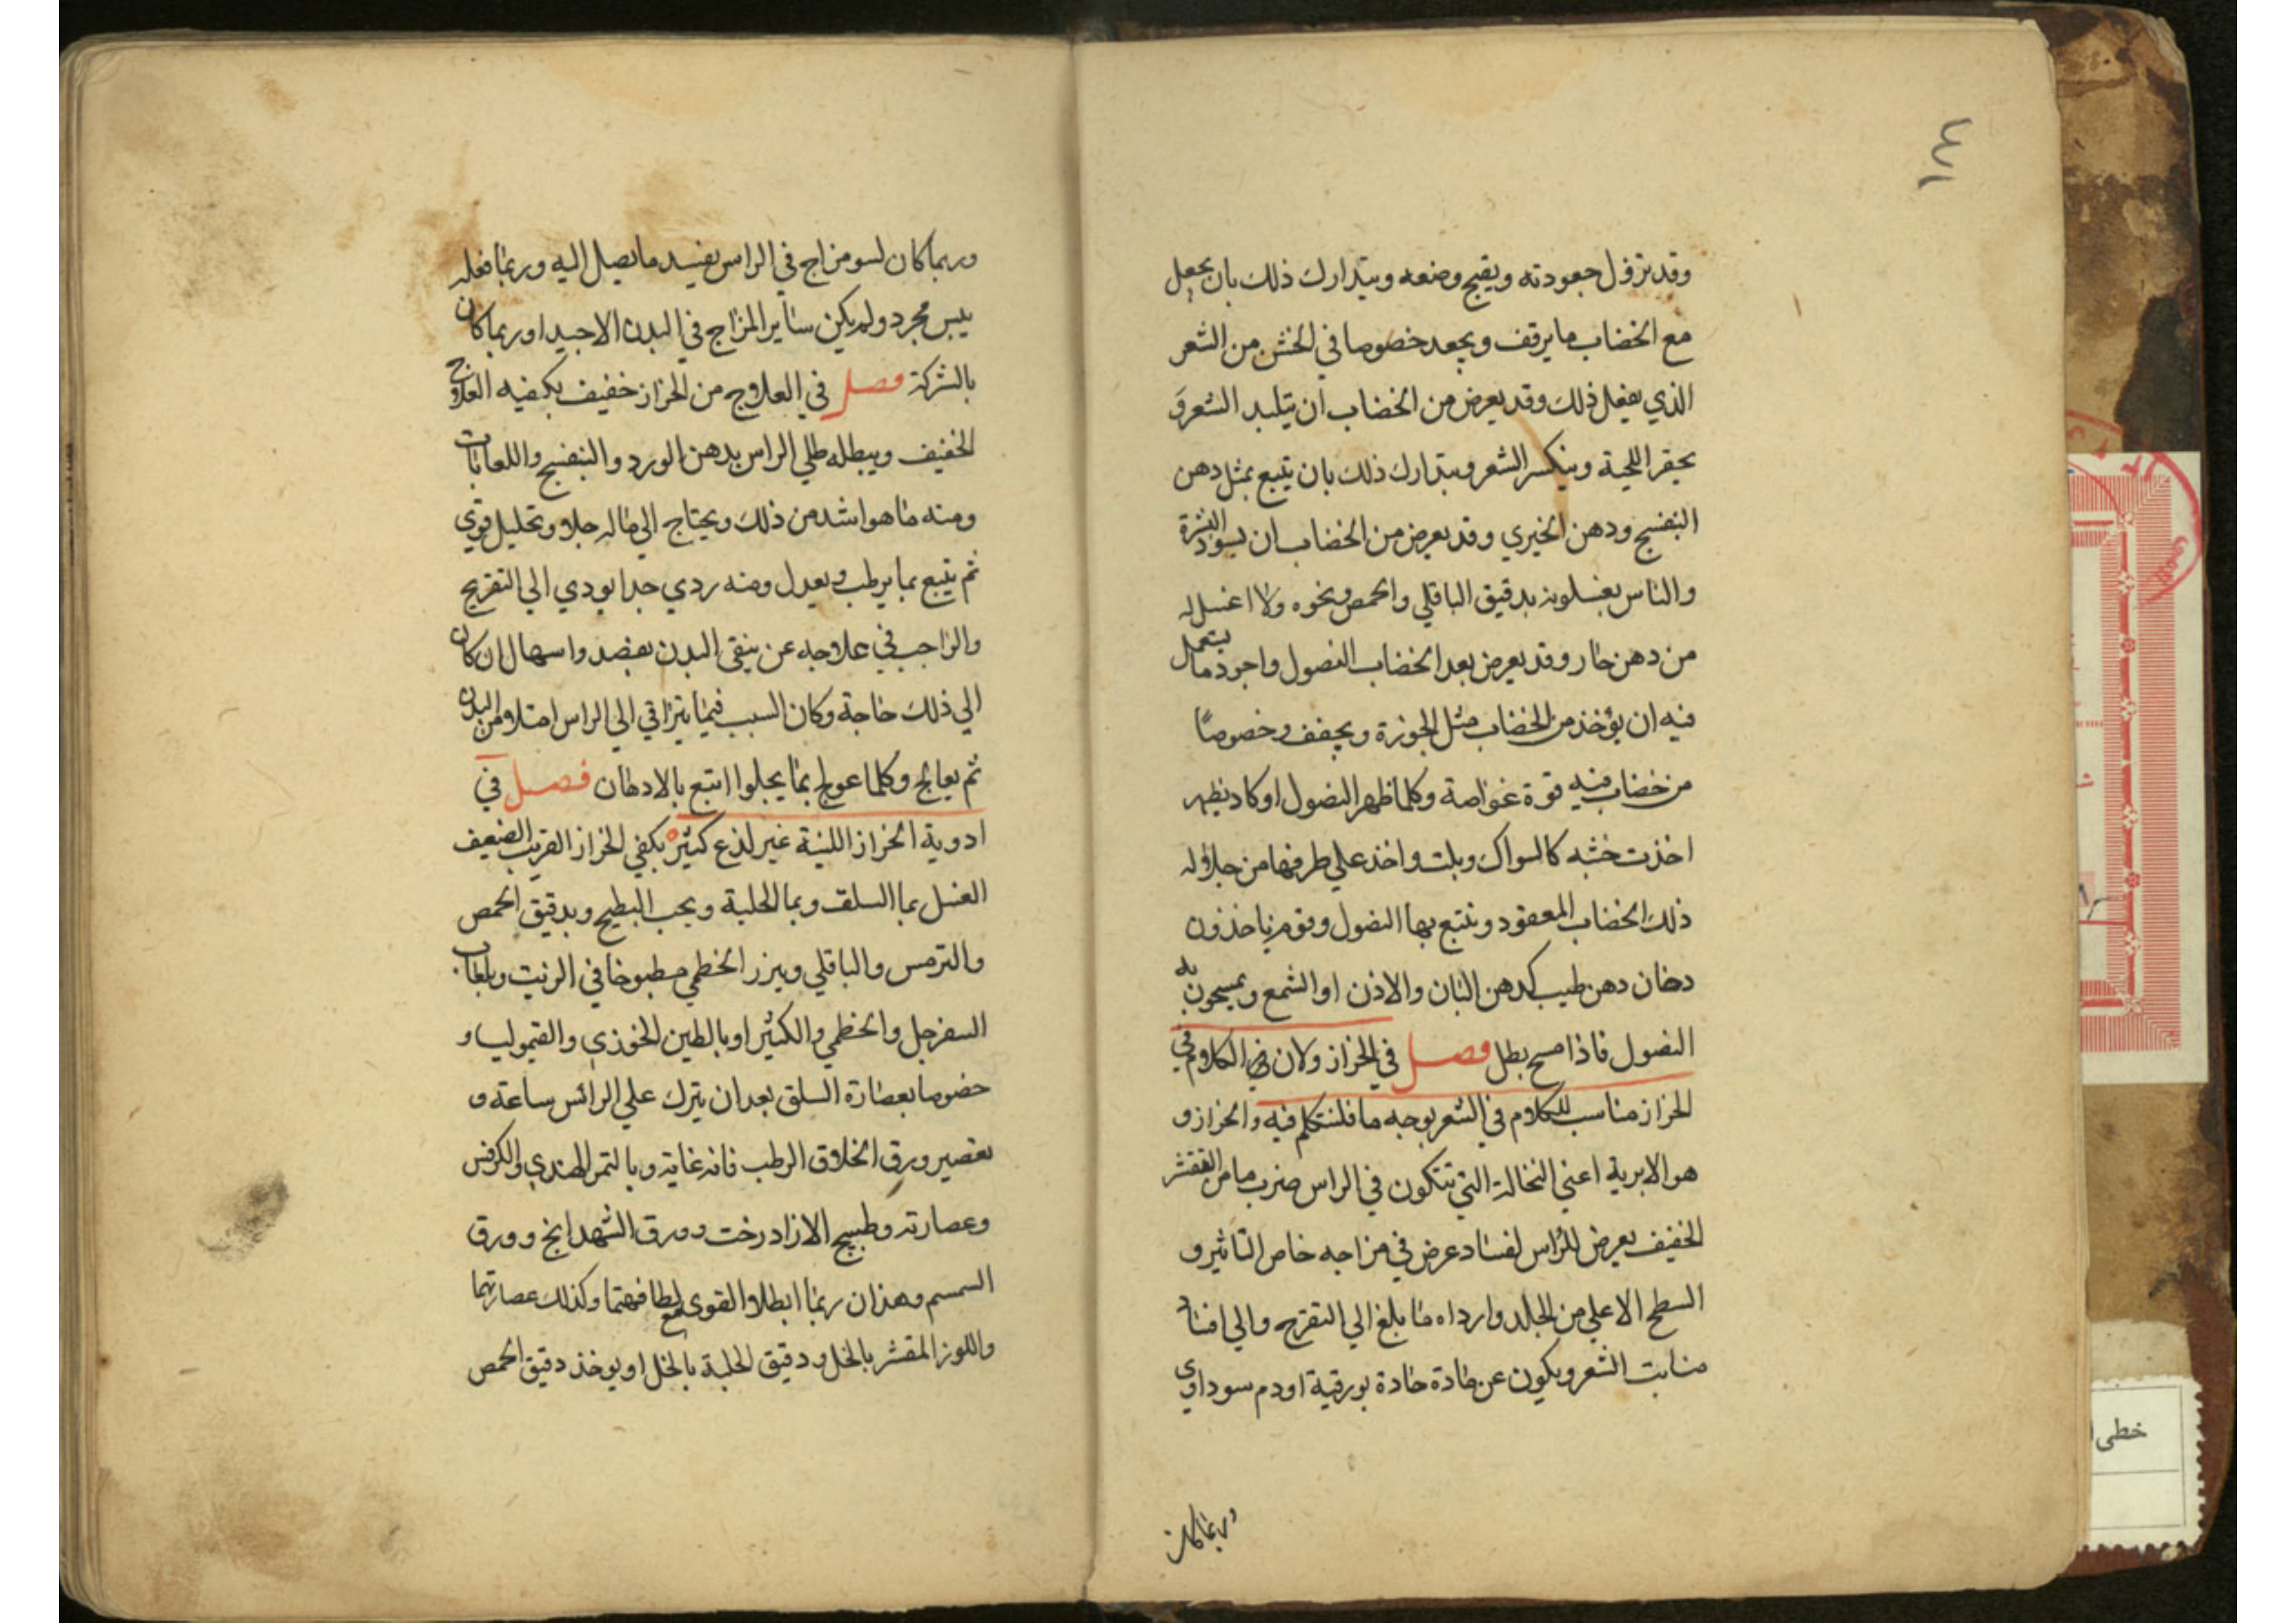 ١٣١
وقد تزول جعودته ويقبح وضعه ويتدارك ذلك بان يجعل
مع الخضاب ما يرقف ويجعد خصوصا في الخشن من الشعر
الذي يفعل ذلك وقد يعرض من الخضاب ان يتلبد الشعر و
يحقر اللحية وينكسر الشعر ويتدارك ذلك بان يتبع بمثل دهن
البنفسج ودهن الخيري وقد يعرض من الخضاب ان يسود البشرة
والناس يغسلونه بدقيق الباقلي والحمص ونحوه ولا اغسل له
من دهن حار وقد يعرض بعد الخضاب النصول واجود ما يستعمل
فيه ان يؤخذ من الخضاب مثل الجوزة ويجفف وخصوصًا
من خضاب فيه قوة غواصة وكلما ظهر النصول او كاد يظهر
اخذت خشبه كالسواك وبلت واخذ علي طرفها من جلاله
ذلك الخضاب المعقود وتتبع بها النصول وقوم ياخذون
دخان دهن طيب كدهن البان والاذن او الشمع ويمسحون به
النصول فاذا مسح بطل فصل في الحزاز ولان الكلام في
الحزاز مناسب للكلام في الشعر بوجه ما فلنتكلم فيه والحزاز و
هو الابرية اعني النخالة التي تتكون في الراس ضرب ما من التقشر
الخفيف يعرض للراس لفساد عرض في مزاجه خاص التاثير و
السطح الاعلي من الجلد وارداه ما بلغ الي التقرح والي افساد
منابت الشعر ويكون عن مادة حادة بورقية او دم سوداوي
وربما كان
وربما كان لسو مزاج في الراس يفسد ما يصل اليه وربما فعله
يبس مجرد ولم يكن ساير المزاج في البدن الا جيدا وربما كان
بالشركة فصل في العلاج من الحزاز خفيف يكفيه العلاج
الخفيف ويبطله طلي الراس بدهن الورد والبنفسج واللعابات
ومنه ما هو اشد من ذلك ويحتاج الي ماله جلا وتحليل قوي
ثم يتبع بما يرطب ويعدل ومنه ردي جدا يودي الي التقريح
والواجب في علاجه عن ينقي البدن بفصد واسهال ان كان
الي ذلك حاجة وكان السبب فيما يتراقي الي الراس امتلا من البدن
ثم يعالج وكلما عولج بما يجلوا اتبع بالادهان فصل في
ادوية الحزاز اللينة غير لذع كثيره يكفي الحزاز القريب الضعيف
الغسل بما السلق وبما الحلبة وبحب البطيح وبدقيق الحمص
والترمس والباقلي وببزر الخطمي مطبوخا في الزيت وبلعاب
السفرجل والخطمي والكثيرا وبالطين الخوزي والقيموليا و
خصوصا بعصارة السلق بعد ان يترك علي الرائس ساعة و
بعصير ورق الخلاف الرطب فانه غاية وبالتمر الهندي والكرفس
وعصارته وطبيح الازادرخت وورق الشهدانج وورق
السمسم وهذان ربما ابطلا القوي مع لطافهتما وكذلك عصارتهما
واللوز المقشر بالخل ودقيق الحلبة بالخل او يوخذ دقيق الحمص
خطى